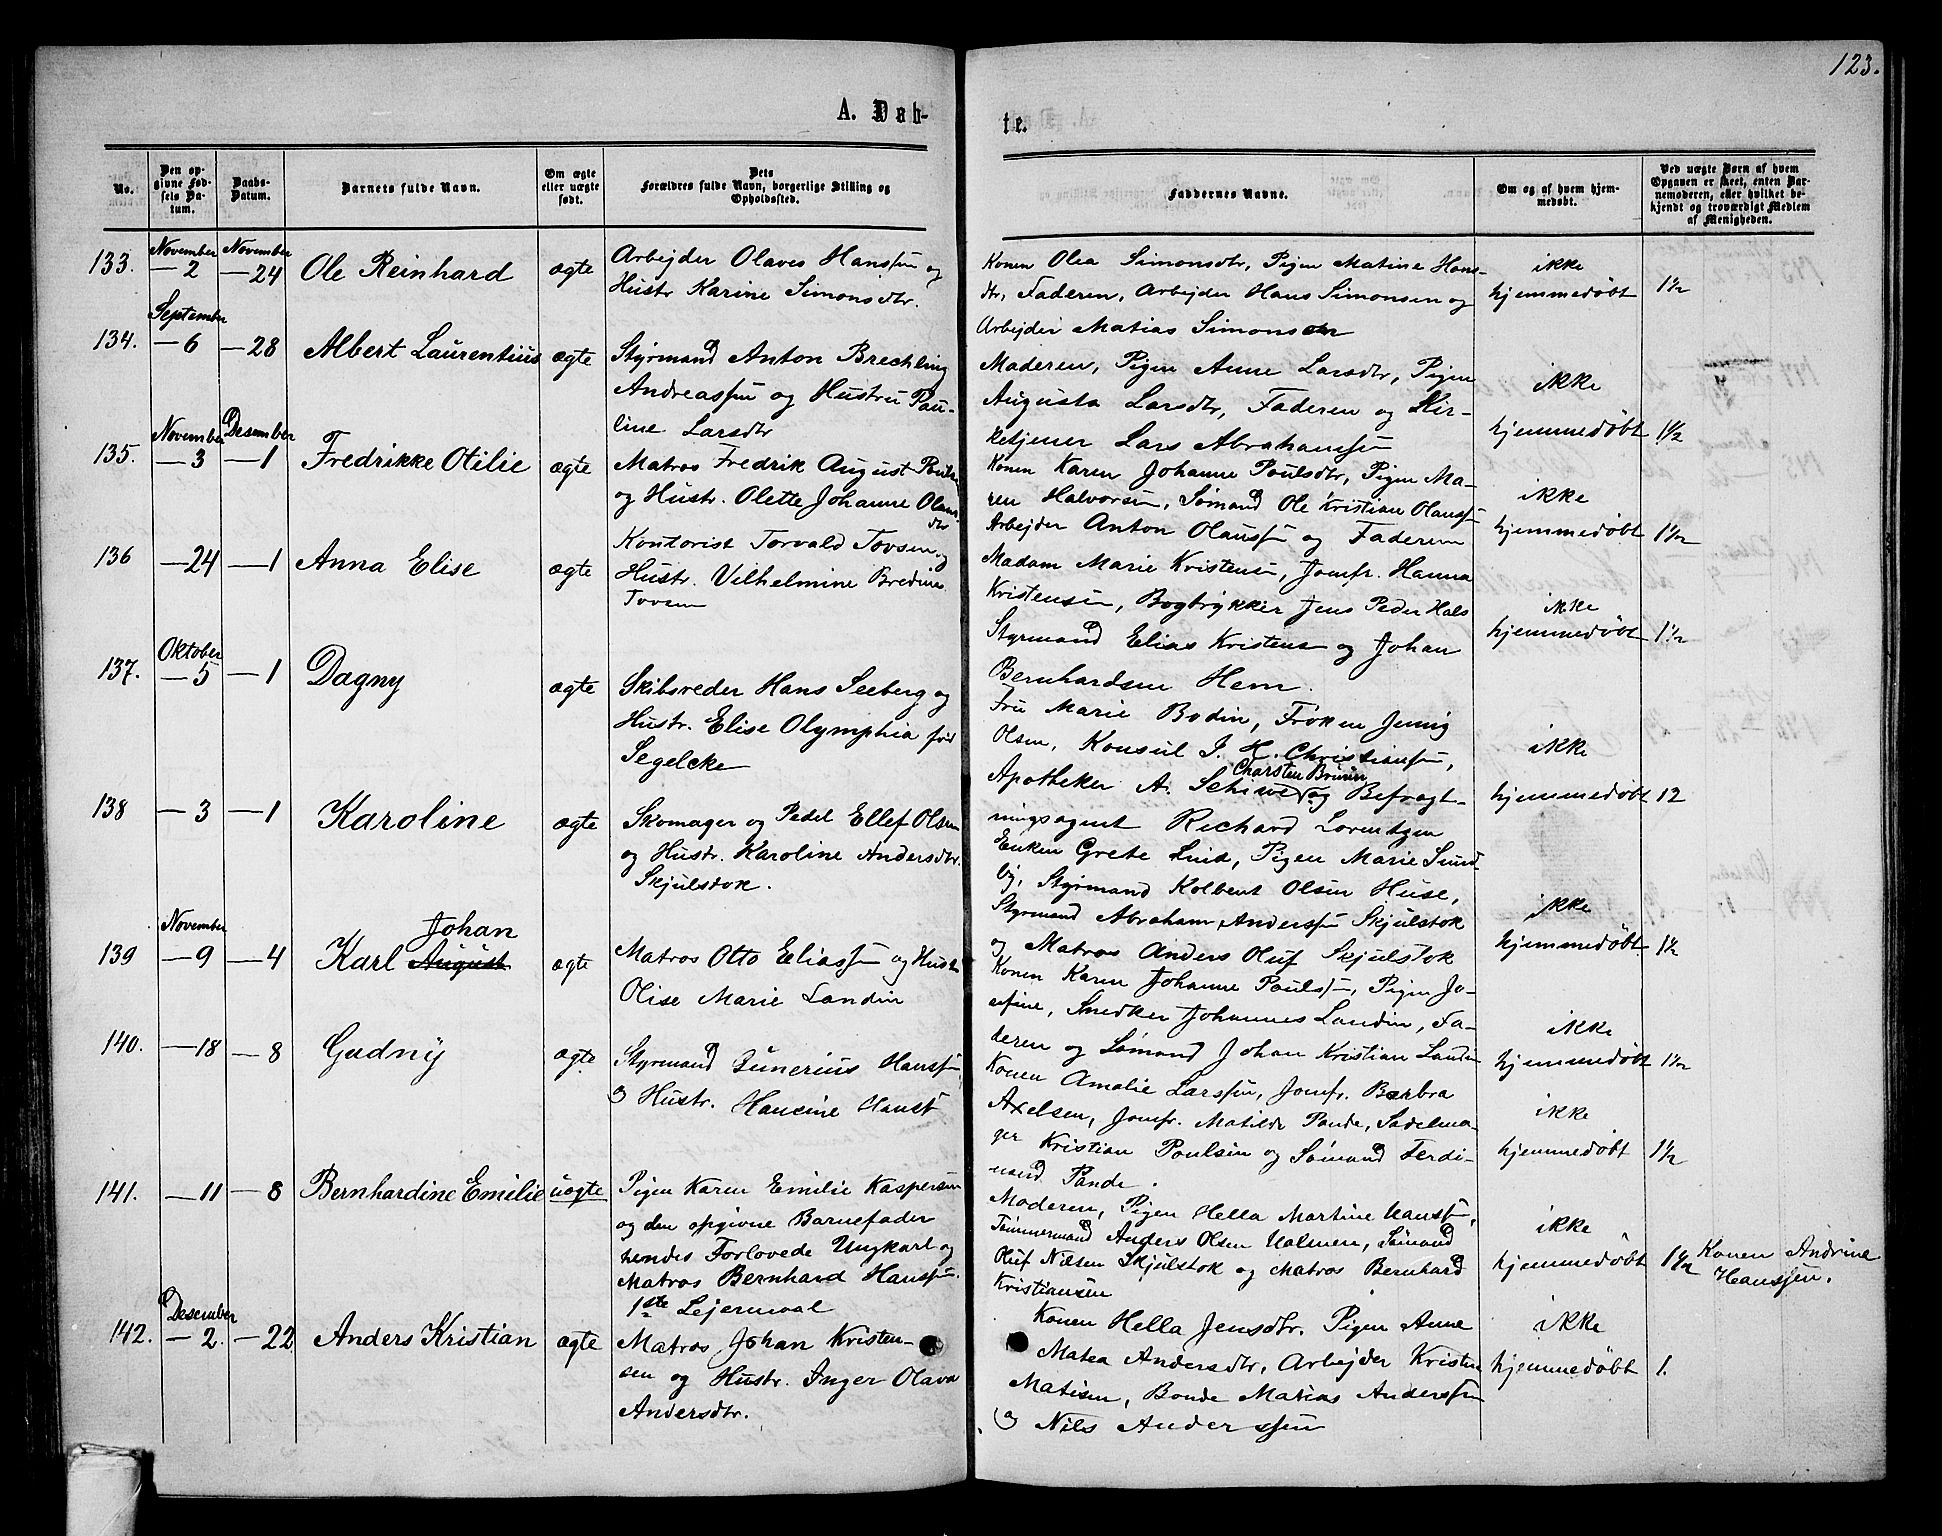 123.
A. Døb-
te.
No.
Den op-
givne Fød-
sels Da-
tum.
Daabs-
Datum.
Barnets fulde Navn.
Om ægte
eller uægte
født.
Dets
Forældres fulde Navn, borgerlige Stilling og
Opholdssted.
Faddernes Navne.
Om og af hvem hjem-
medøbt.
Ved uægte Børn af hvem
Opgaven er skeet, enten Bar-
nemoderen, eller hvilket be-
kjendt og troværdigt Medlem
af Menigheden.
133.
November
— 2
November
— 24
Ole Reinhard
ægte
Arbejder Olaves Hanssen og
Hustr Karine Simonsdtr.
Konen Olea Simonsdtr, Pigen Matine Hans-
dtr, Faderen, Arbejder Hans Simonsen og
Arbejder Matias Simonsen
ikke
hjemmedøbt
1½
134.
September
— 6
— 28
Albert Laurentius
ægte
Styrmand Anton Brechling
Andreassen og Hustru Pau-
line Larsdtr
Moderen, Pigen Anne Larsdtr, Pigen
Augusta Larsdtr, Faderen og Kir-
ketjener Lars Abrahamsen
ikke
hjemmedøbt
1½
135.
November
— 3
Desember
— 1
Fredrikke Otilie
ægte
Matros Fredrik August Pouls
og Hustr. Olette Johanne Olaus
dtr
Konen Karen Johanne Poulsdtr, Pigen Ma-
ren Halvorsen, Sømand Ole Kristian Olaussen
Arbejder Anton Olaussen og Faderen
ikke
hjemmedøbt
1½
136
— 24
— 1
Anna Elise
ægte
Kontorist Torvald Tovsen og
Hustr. Vilhelmine Bredine
Tovsen
Madam Marie Kristensen, Jomfr. Hanna
Kristensen, Bogtrykker Jens Peder Hals
Styrmand Elias Kristensen og Johan
Bernhardsen Hem.
ikke
hjemmedøbt
1½
137.
Oktober
— 5
— 1
Dagny
ægte
Skibsreder Hans Seeberg og
Hustr. Elise Olymphia født
Segelcke
Fru Marie Bodin, Frøken Jenny
Olsen, Konsul J. H. Christiansen,
Charsten Bruun
Apotheker A. Schiwe og Befragt-
ningsagent Richard Lorentzen
ikke
hjemmedøbt
12
138
— 3
— 1
Karoline
ægte
Skomager og Pedel Ellef Olsen
og Hustr. Karoline Andersdtr.
Skjulstok.
Enken Grete Lind, Pigen Marie Sund
by, Styrmand Kolbent Olsen Huse,
Styrmand Abraham Anderssen Skjulstok
og Matros Anders Oluf Skjulstok
ikke
hjemmedøbt
1½
139
November
— 9
— 4
Johan
Karl August
ægte
Matros Otto Eliassen og Hustr
Olise Marie Landin
Konen Karen Johanne Poulsen, Pigen Jo-
sefine, Snedker Johannes Landin, Fa-
deren og Sømand Johan Kristian Landin
ikke
hjemmedøbt
1½
140.
— 18
— 8
Gudny
ægte
Styrmand Gunerius Hanssen
og Hustr. Hansine Hansd
Konen Amalie Larssen, Jomfr. Barbra
Axelsen, Jomfr. Matilde Pande, Sadelma-
ger Kristian Poulsen og Sømand Ferdi-
nand Pande.
ikke
hjemmedøbt
1½
141.
— 11
— 8
Bernhardine Emilie
uægte
Pigen Karen Emilie Kaspersen
og den opgivne Barnefader
hendes Forlovede Ungkarl og
Matros Bernhard Hanssen.
1ste Lejermaal
Moderen, Pigen Hella Martine Hanssen,
Tømmermand Anders Olsen Halmen, Sømand
Oluf Nilsen Skjulstok og Matros Bernhard
Kristiansen
ikke
hjemmedøbt
1½
Konen Andrine
Hanssen.
142.
Desember
— 2.
— 22
Anders Kristian
ægte
Matros Johan Kristen-
sen og Hustr. Inger Olava
Andersdtr.
Konen Hella Jensdtr. Pigen Anne
Matea Andersdtr, Arbejder Kristen
Matisen, Bonde Matias Anderssen
og Nils Anderssen
ikke
hjemmedøbt
1.